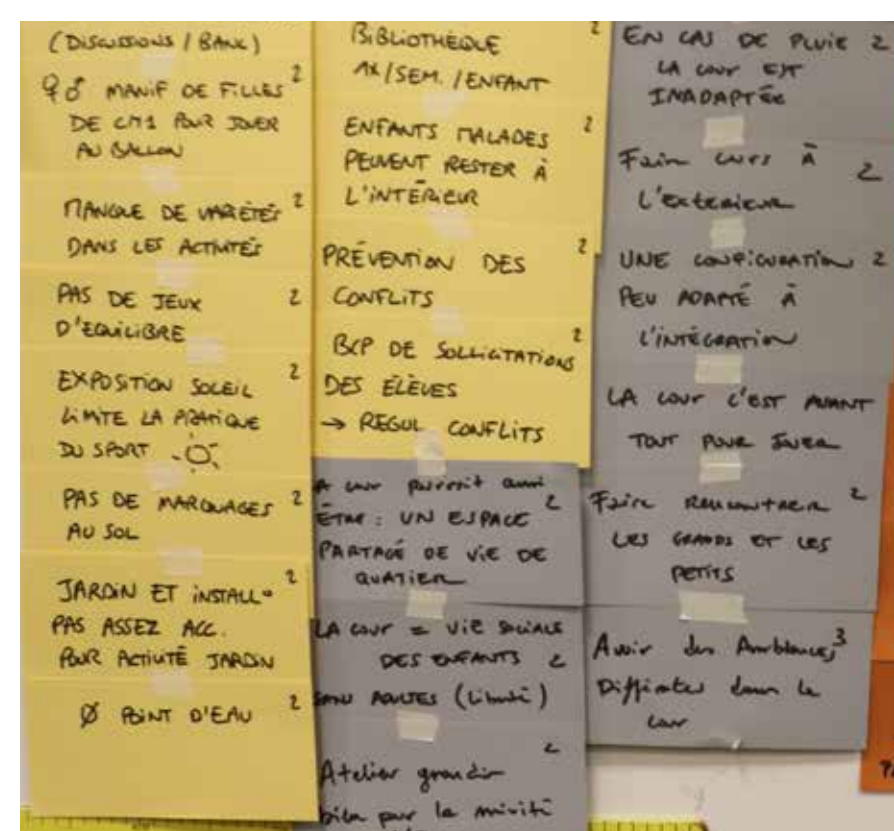 (DISCUSSIONS / BANC)
♀♂ MANIF DE FILLES 2
DE CM1 POUR JOUER
AU BALLON
MANQUE DE VARIÉTÉS 2
DANS LES ACTIVITÉS
PAS DE JEUX 2
D'EQUILIBRE
EXPOSITION SOLEIL 2
LIMITE LA PRATIQUE
DU SPORT
PAS DE MARQUAGES 2
AU SOL
JARDIN ET INSTALL° 2
PAS ASSEZ ACC.
POUR ACTIVITÉ JARDIN
Ø POINT D'EAU 2
BIBLIOTHEQUE 2
1X/SEM./ENFANT
ENFANTS MALADES 2
PEUVENT RESTER À
L'INTÉRIEUR
PRÉVENTION DES 2
CONFLITS
BCP DE SOLLICITATIONS 2
DES ÉLÈVES
→ REGUL CONFLITS
A cour pourrait aussi
ÊTRE : UN ESPACE 2
PARTAGÉ DE VIE DE
QUATIER
LA COUR = VIE SOCIALE
DES ENFANTS 2
SANS ADULTES (Liberté)
2
Atelier grandir
bien par la mixité
EN CAS DE PLUIE 2
LA COUR EST
INADAPTÉE
Faire cours À 2
L'EXTERIEUR
UNE CONFIGURATION 2
PEU ADAPTÉ À
L'INTÉGRATION
LA COUR C'EST AVANT
TOUT POUR JOUER
Faire RENCONTRER 2
LES GRANDS ET LES
PETITS
Avoir des Ambiances 3
Différentes dans la
cour